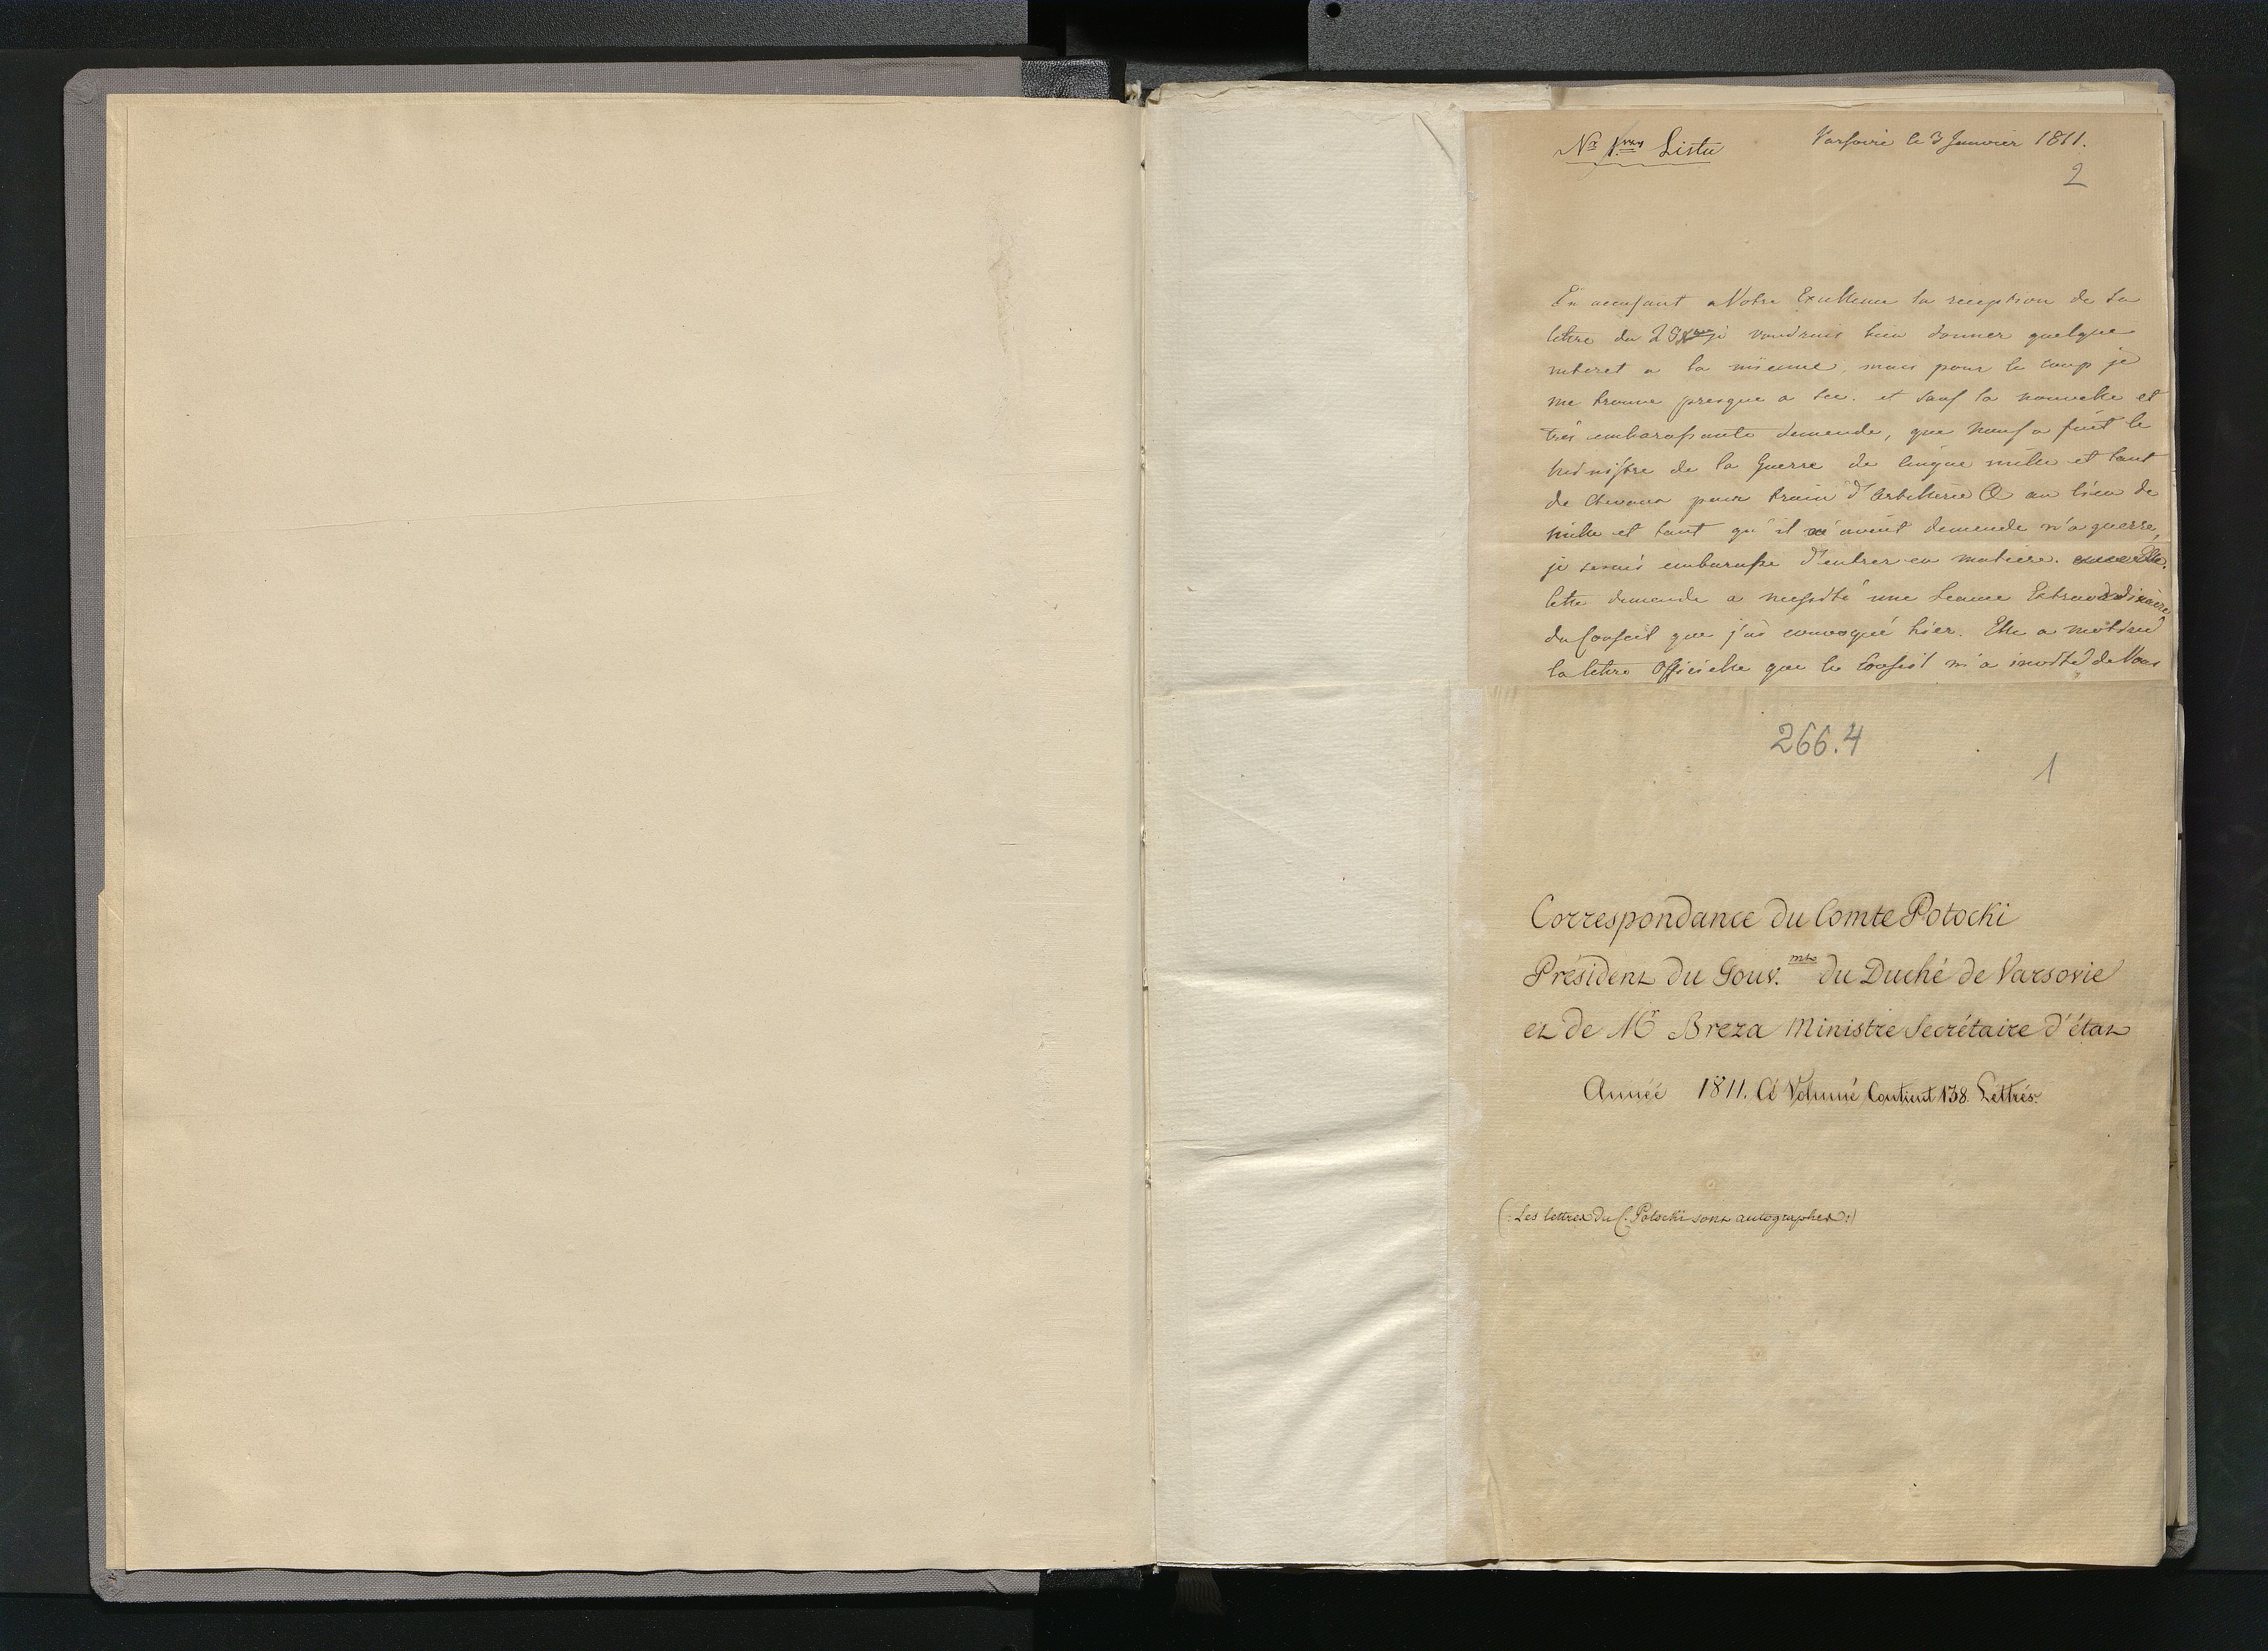 Nr 1wszy Listu
Varsovie le 3 Janvier 1811.
2
En accusant a Votre Excellence la reception de sa
lettre du 29 je voudrais bien donner quelque
interet a la mienne, mais pour le coup je
me trouve presque a sec. et sauf la nouvelle et
très embarassante demende, que nous a fait le
Ministre de la Guerre de cinque mille et tant
de chevaux pour train d'Artillerie & au lieu de
mille et tant qu'il avait demende n'a guerre,
je serais embarasse d'entrer en matiere.
Cette demende a necessité une Seance Extraordinaire
du Conseil que j'ai convoqué hier. Elle a motivé
la lettre Officielle que le Conseil m'a invité de Vous
266.4
1
Correspondance du Comte Potocki
Président du Gouv.mt du Duché de Varsovie
et de Mr Breza Ministre Secrétaire d'état
Année 1811. Cé Volumé Contient 138. Lettrés.
(:Les lettres du C. Potocki sont autographes:)